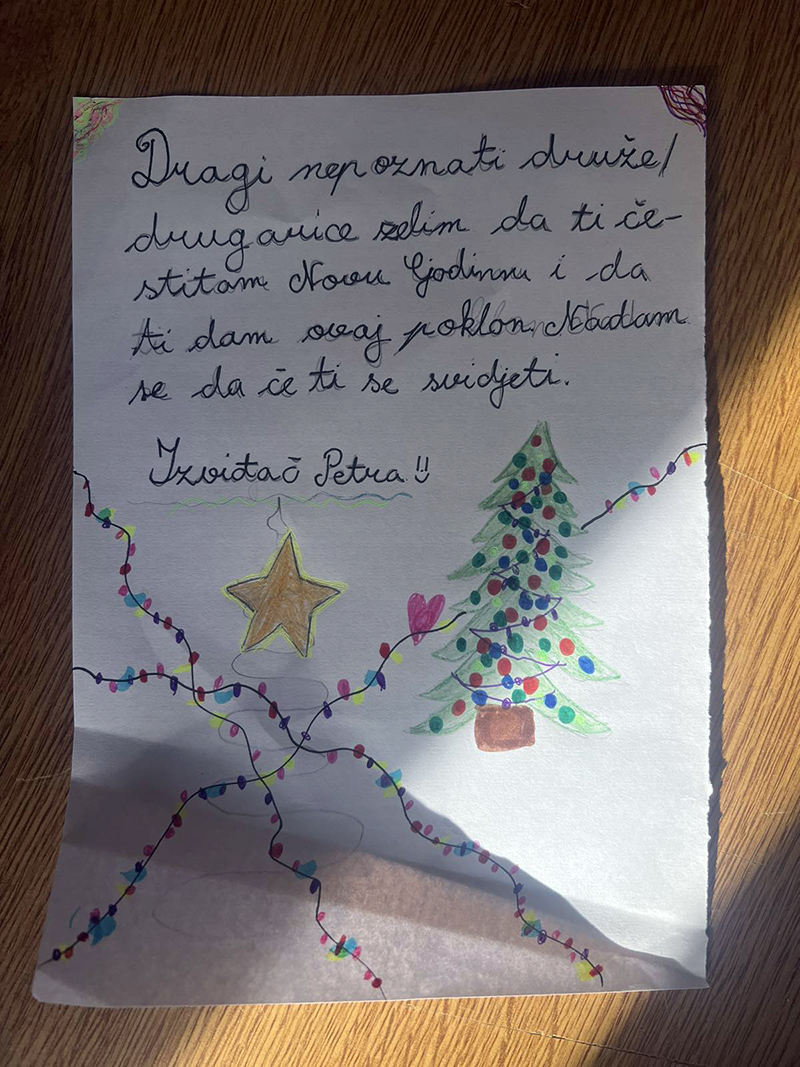 Dragi nepoznati druže/
drugarice zelim da ti če-
stitam Novu Godinnu i da
ti dam ovaj poklon. Nadam
se da če ti se svidjeti.
Izviđač Petra!!